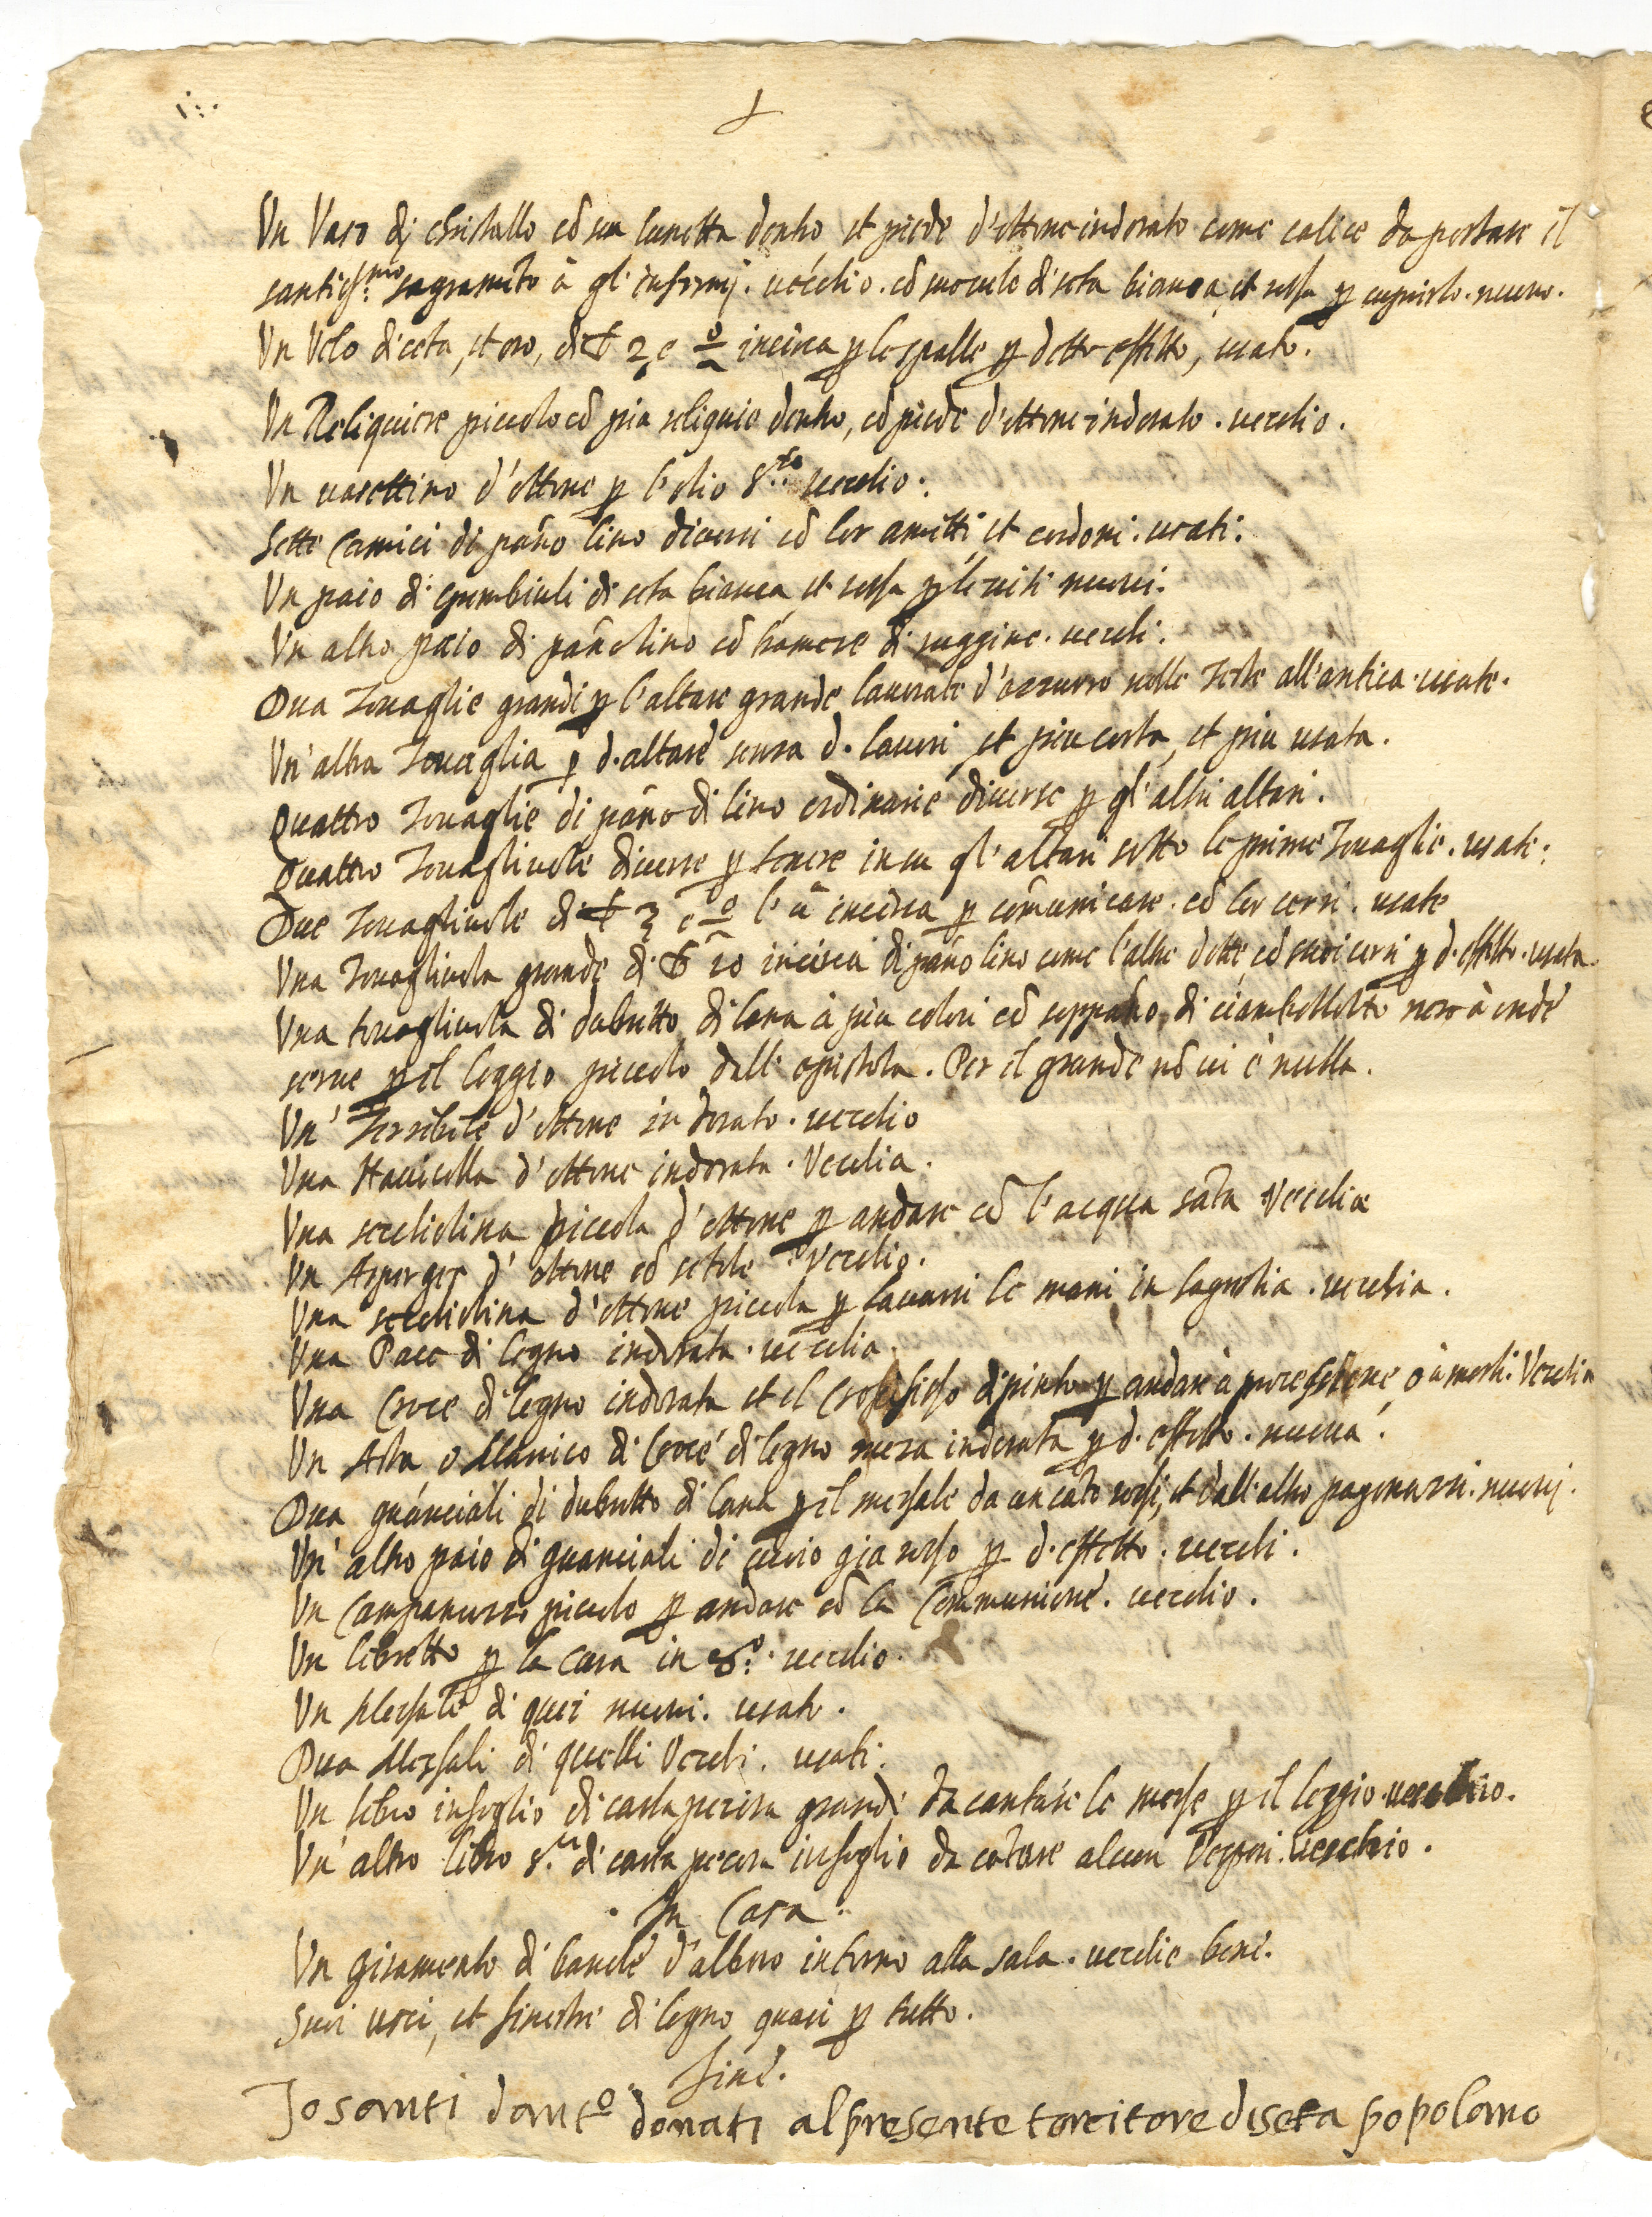 Un Vaso di christallo cō sua lunetta dentro et piede d'ottone indorato come calice da portare il
santiss.mo sagramēto à gl'infermj. vecchio. cō suo culo di seta bianca, et rossa p cuprirlo. nuovo.
Un Velo di seta, et oro, di ƀ 2 e o/2 incirca p le spalle p detto effetto, usato.
Un Reliquiere piccolo cō piu reliquie dentro, cō piede d'ottone indorato. vecchio.
Un vasettino d'ottone p l'olio S.to vecchio.
Sette Camici di pāno lino diversi cō lor amitti, et cordoni. usati.
Un paio di grembiuli di seta bianca, et rossa p leviti nuovi.
Un altro paio di pāno lino cō tramere di ruggine. vecchi.
Dua Tovaglie grandi p l'altare grande lavorate d'azzurro nelle Teste all'antica. usate.
Un'altra Tovaglia p d. altare senza d. lavori, et piu corta, et piu usata.
Quattro Tovaglie di pāno di lino ordinarie diverse p gl'altri altari.
Quattro Tovagliuole diverse p tenere in su gl'altari sotto le prime Tovaglie. usate.
Due Tovagliuole di ƀ 3 e o/2 l'ū incirca p comunicare. cō lor cerri. usate
Una Tovagliuola grande di ƀ 10 incirca di pāno lino come l'altre dette, cō suoi cerri p d. effetto. usata.
Una tovagliuola di dubretto di lana à piu colori cō soppāno di ciambellotto nero à onde
serve p il leggio piccolo dell'epistola. Per il grande nō vi è nulla.
Un' Terribile d'ottone indorato. vecchio
Una Navicella d'ottone indorata. Vecchia.
Una secchiolina piccola d'ottone p andare cō l'acqua sāta vecchia
Un Asperges d'ottone cō setole. vecchio.
Una secchiolina d'ottone piccola p lavarsi le mani in sagrestia. vecchia.
Una Pace di legno indorata. vecchia.
Una Croce di legno indorata et il Crosifisso dipinto p andare à processione, o à morti. Vecchia
Un Asta o Manico di Croce di legno meza indorata p d. effetto. nuova.
Dua guanciali di dubretto di lana p il messale da un cāto rossi, et dall'altro pagonazzi. nuovj.
Un' altro paio di guanciali di cuoio gia rosso p d. effetto. vecchi.
Un Campanuzzo piccolo p andare cō la Communione. vecchio.
Un libretto p la cura in 8.o vecchio.
Un Messale di quei nuovi. usato.
Dua Messali di quelli Vecchi. usati.
Un libro in foglio di carta pecora grande da cantare le messe p il leggio. vecchio.
Un'altro libro s.li di carta pecora in foglio da cātare alcuni Vesperi. vecchio.
In Casa.
Un giramento di banche d'albero intorno alla sala. vecchie bene.
Suoi usci, et finestre di legno quasi p tutto.
Fine.
Jo santi d ant.o donati al presente torcitore di seta popolano